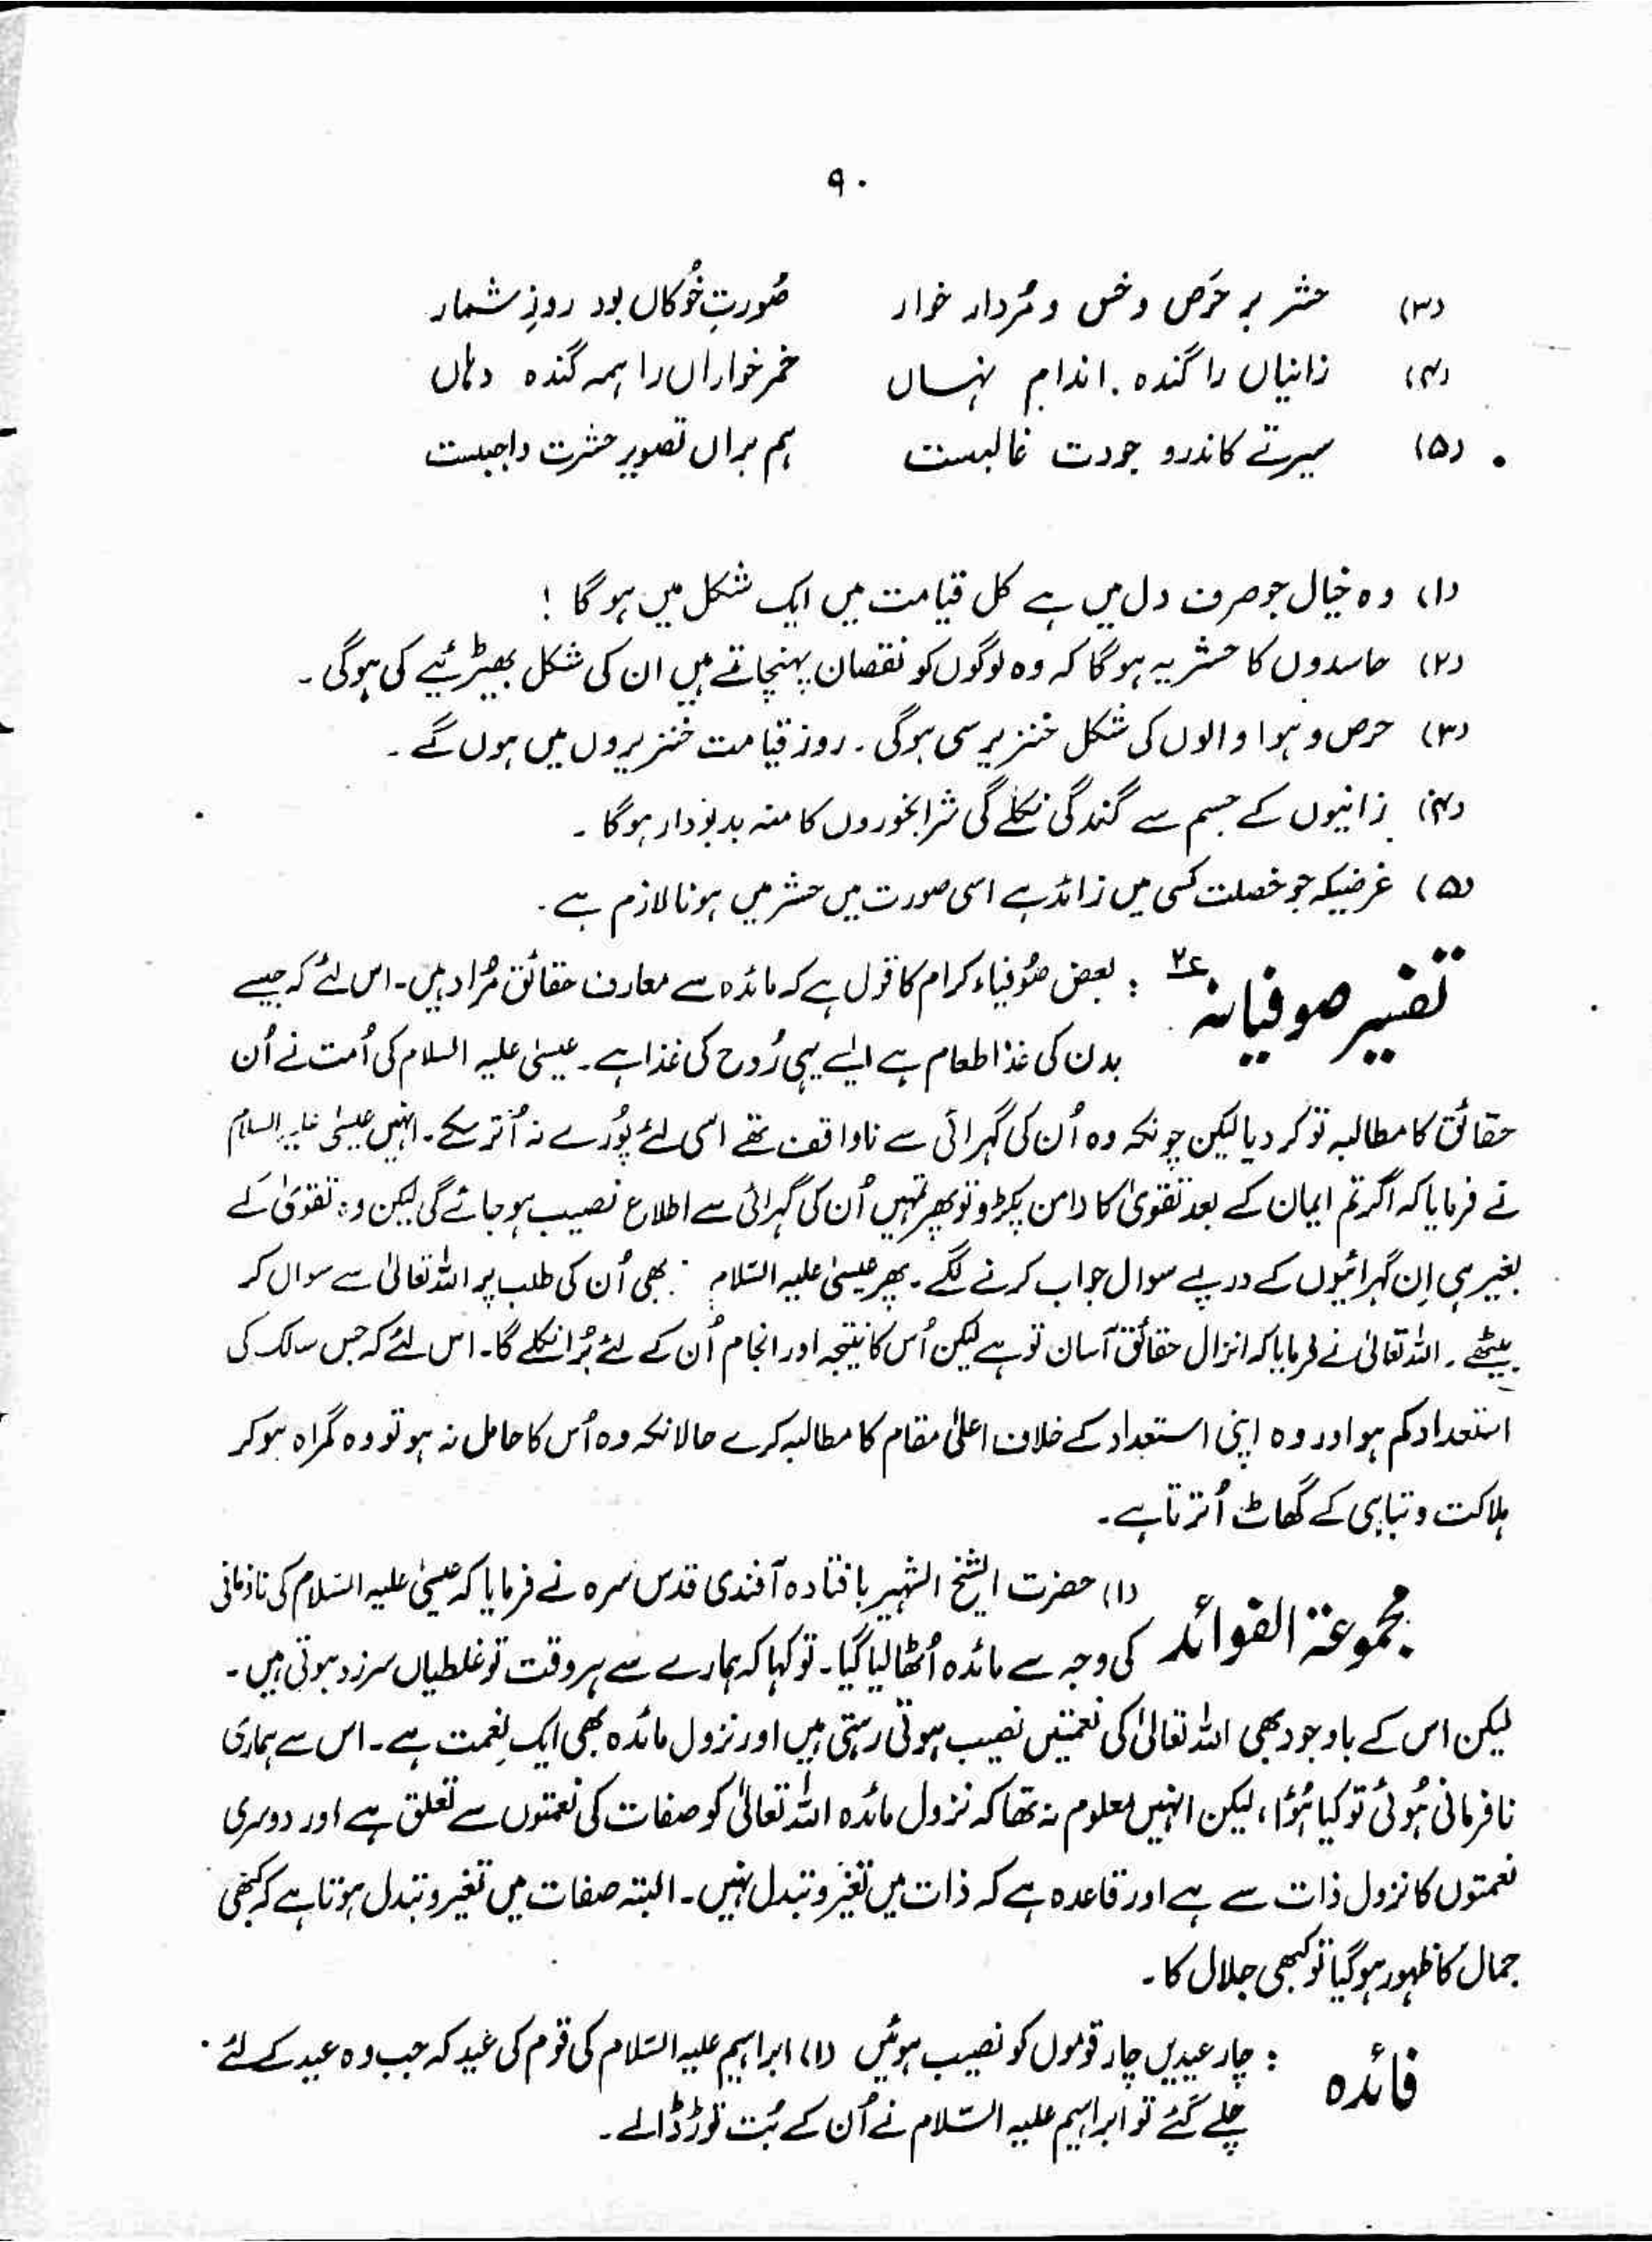 ۹۰
(۳) حشر بر حَرص وخس و مُردار خوار صُورتِ خُوکاں بود روزِ شمار
(۴) زانیاں را گندہ اندام نہاں خمر خواراں را ہمہ گندہ دہاں
(۵) سیرتے کاندرو جودت غالبست ہم براں تصویر حشرت واجبست
(۱) وہ خیال جو صرف دل میں ہے کل قیامت میں ایک شکل میں ہو گا !
(۲) حاسدوں کا حشر یہ ہوگا کہ وہ لوگوں کو نقصان پہنچاتے ہیں ان کی شکل بھیڑیئے کی ہوگی ۔
(۳) حرص و ہوا والوں کی شکل خنزیر سی ہوگی ۔ روز قیامت خنزیروں میں ہوں گے ۔
(۴) زانیوں کے جسم سے گندگی نکلے گی شرابخوروں کا منہ بدبودار ہوگا ۔
(۵) غرضیکہ جو خصلت کسی میں زائد ہے اسی صورت میں حشر میں ہونا لازم ہے ۔
تفسیر صوفیانہ ع۲ : بعض صُوفیاء کرام کا قول ہے کہ مائدہ سے معارف حقائق مُراد ہیں۔ اس لئے کہ جیسے
بدن کی غذا طعام ہے ایسے یہی رُوح کی غذا ہے ۔ عیسیٰ علیہ السلام کی اُمت نے اُن
حقائق کا مطالبہ تو کر دیا لیکن چونکہ وہ اُن کی گہرائی سے ناواقف تھے اسی لئے پُورے نہ اُتر سکے ۔ انہیں عیسیٰ علیہ السلام
نے فرمایا کہ اگر تم ایمان کے بعد تقویٰ کا دامن پکڑو تو پھر تمہیں اُن کی گہرائی سے اطلاع نصیب ہو جائے گی لیکن وہ تقویٰ کے
بغیر ہی اِن گہرائیوں کے درپے سوال جواب کرنے لگے ۔ پھر عیسیٰ علیہ السّلام بھی اُن کی طلب پر اللہ تعالیٰ سے سوال کر
بیٹھے ۔ اللہ تعالیٰ نے فرمایا کہ انزال حقائق آسان تو ہے لیکن اُس کا نتیجہ اور انجام اُن کے لئے بُرا نکلے گا۔ اس لئے کہ جس سالک کی
استعداد کم ہو اور وہ اپنی استعداد کے خلاف اعلیٰ مقام کا مطالبہ کرے حالانکہ وہ اُس کا حامل نہ ہو تو وہ گمراہ ہو کر
ہلاکت و تباہی کے گھاٹ اُترتا ہے ۔
مجموعۃ الفوائد (۱) حضرت الشیخ الشہیر بافتادہ آفندی قدس سرہ نے فرمایا کہ عیسیٰ علیہ السّلام کی نافرمانی
کی وجہ سے مائدہ اُٹھا لیا گیا ۔ تو کہا کہ ہمارے سے ہر وقت تو غلطیاں سرزد ہوتی ہیں ۔
لیکن اس کے باوجود بھی اللہ تعالیٰ کی نعمتیں نصیب ہوتی رہتی ہیں اور نزول مائدہ بھی ایک نِعمت ہے۔ اس سے ہماری
نافرمانی ہُوئی تو کیا ہُوا ، لیکن انہیں معلوم نہ تھا کہ نزول مائدہ اللہ تعالیٰ کو صفات کی نعمتوں سے تعلق ہے اور دوسری
نعمتوں کا نزول ذات سے ہے اور قاعدہ ہے کہ ذات میں تغیر و تبدل نہیں ۔ البتہ صفات میں تغیر و تبدل ہوتا ہے کہ کبھی
جمال کا ظہور ہو گیا تو کبھی جلال کا ۔
فائدہ : چار عیدیں چار قوموں کو نصیب ہوئیں (۱) ابراہیم علیہ السّلام کی قوم کی عید کہ جب وہ عید کے لئے
چلے گئے تو ابراہیم علیہ السّلام نے اُن کے بُت توڑ ڈالے ۔